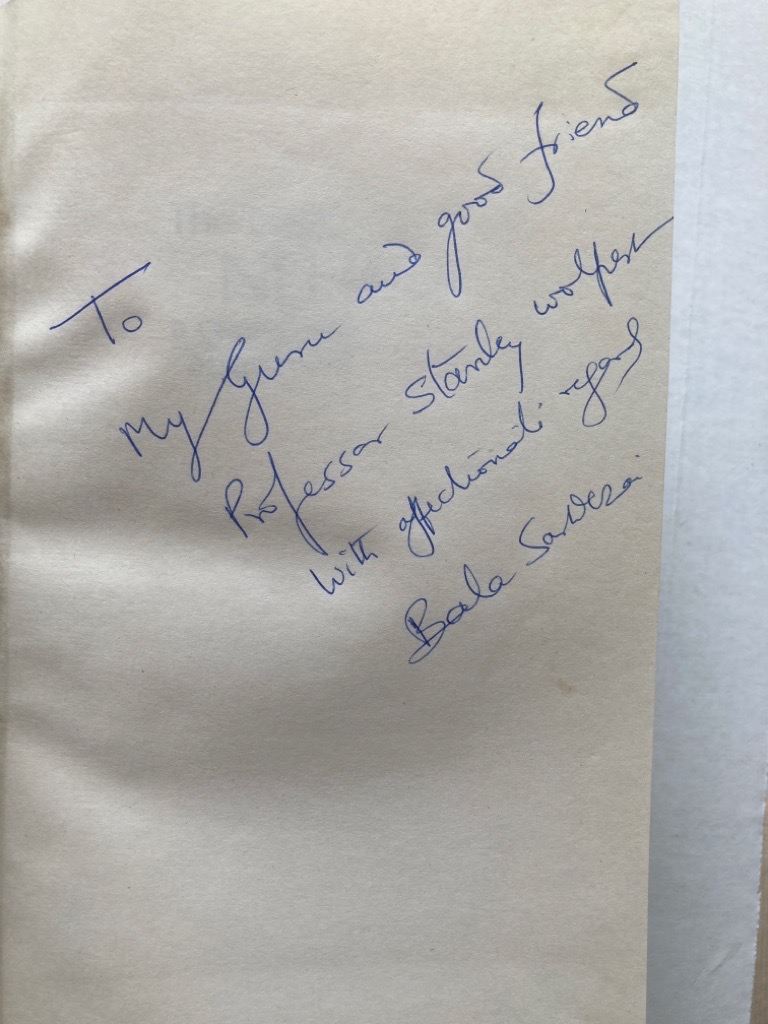 To
My Guru and good friend
Professor Stanley Wolpert
With affectionate regards
Bala